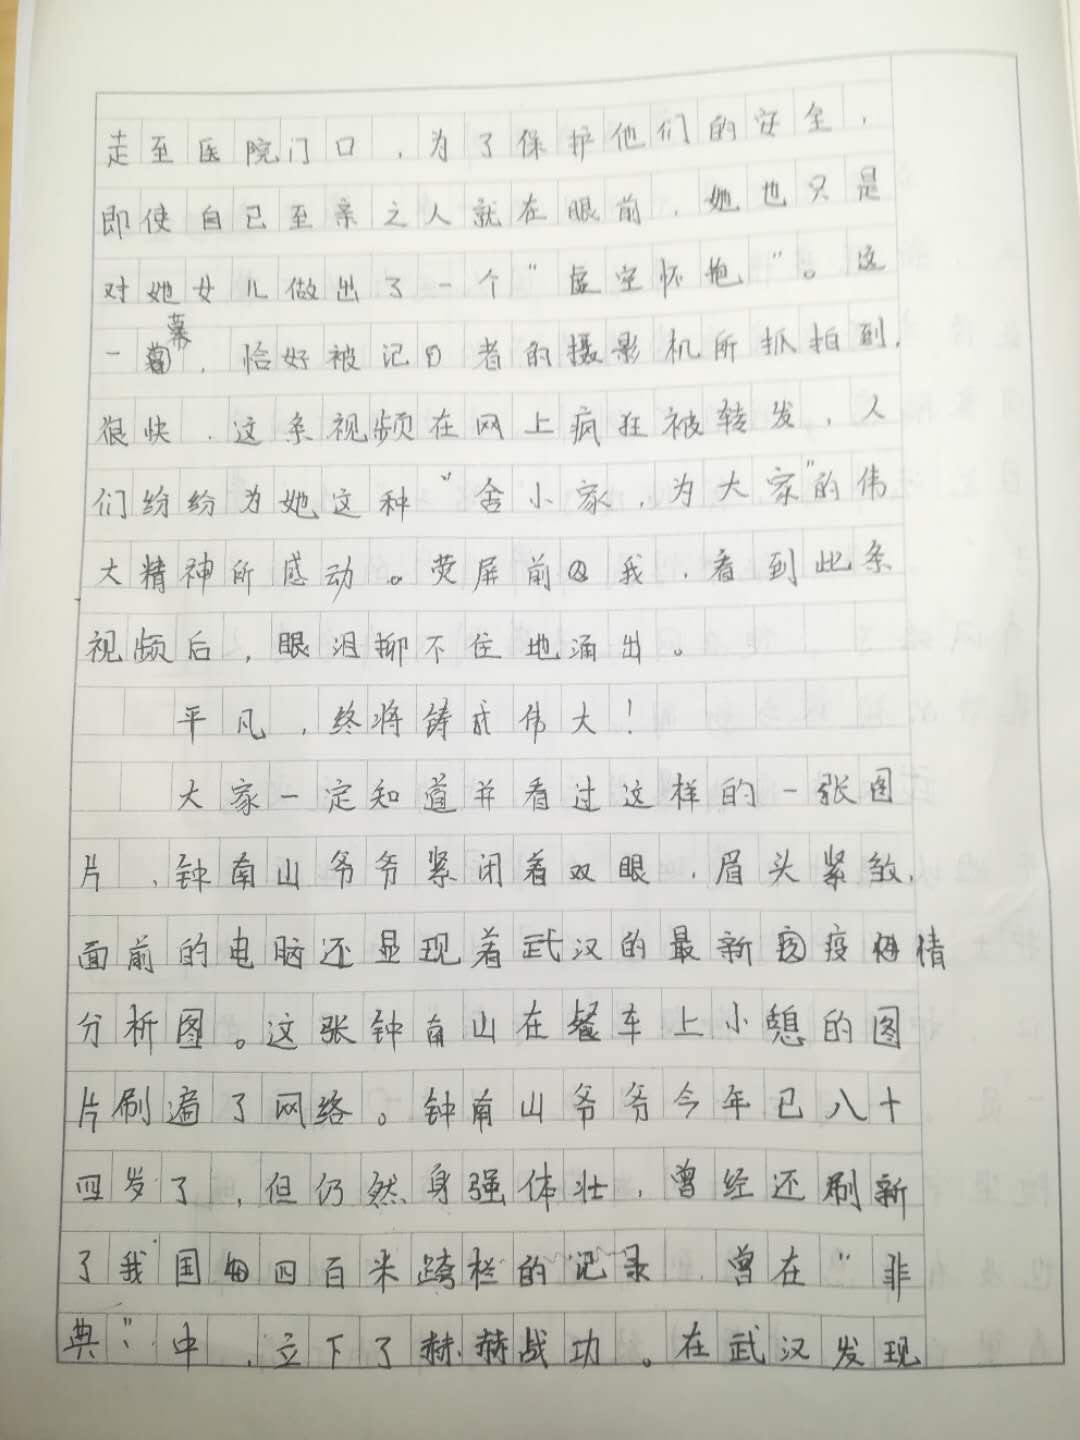 走至医院门口，为了保护他们的安全，
即使自己至亲之人就在眼前，她也只是
对她女儿做出了一个“虚空怀抱”。这
一幕，恰好被记者的摄影机所抓拍到，
很快，这条视频在网上疯狂被转发，人
们纷纷为她这种“舍小家，为大家”的伟
大精神所感动。荧屏前我，看到此条
视频后，眼泪抑不住地涌出。
平凡，终将铸成伟大！
大家一定知道并看过这样的一张图
片，钟南山爷爷紧闭着双眼，眉头紧皱，
面前的电脑还显现着武汉的最新疫情
分析图。这张钟南山在餐车上小憩的图
片刷遍了网络。钟南山爷爷今年已八十
四岁了，但仍然身强体壮，曾经还刷新
了我国四百米跨栏的记录，曾在“非
典”中，立下了赫赫战功。在武汉发现